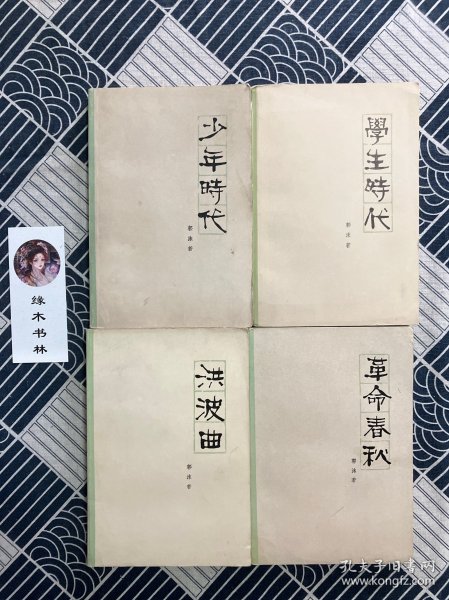 少年時代
郭沫若
學生時代
郭沫若
缘木书林
洪波曲
郭沫若
革命春秋
郭沫若
孔夫子旧书网
www.kongfz.com